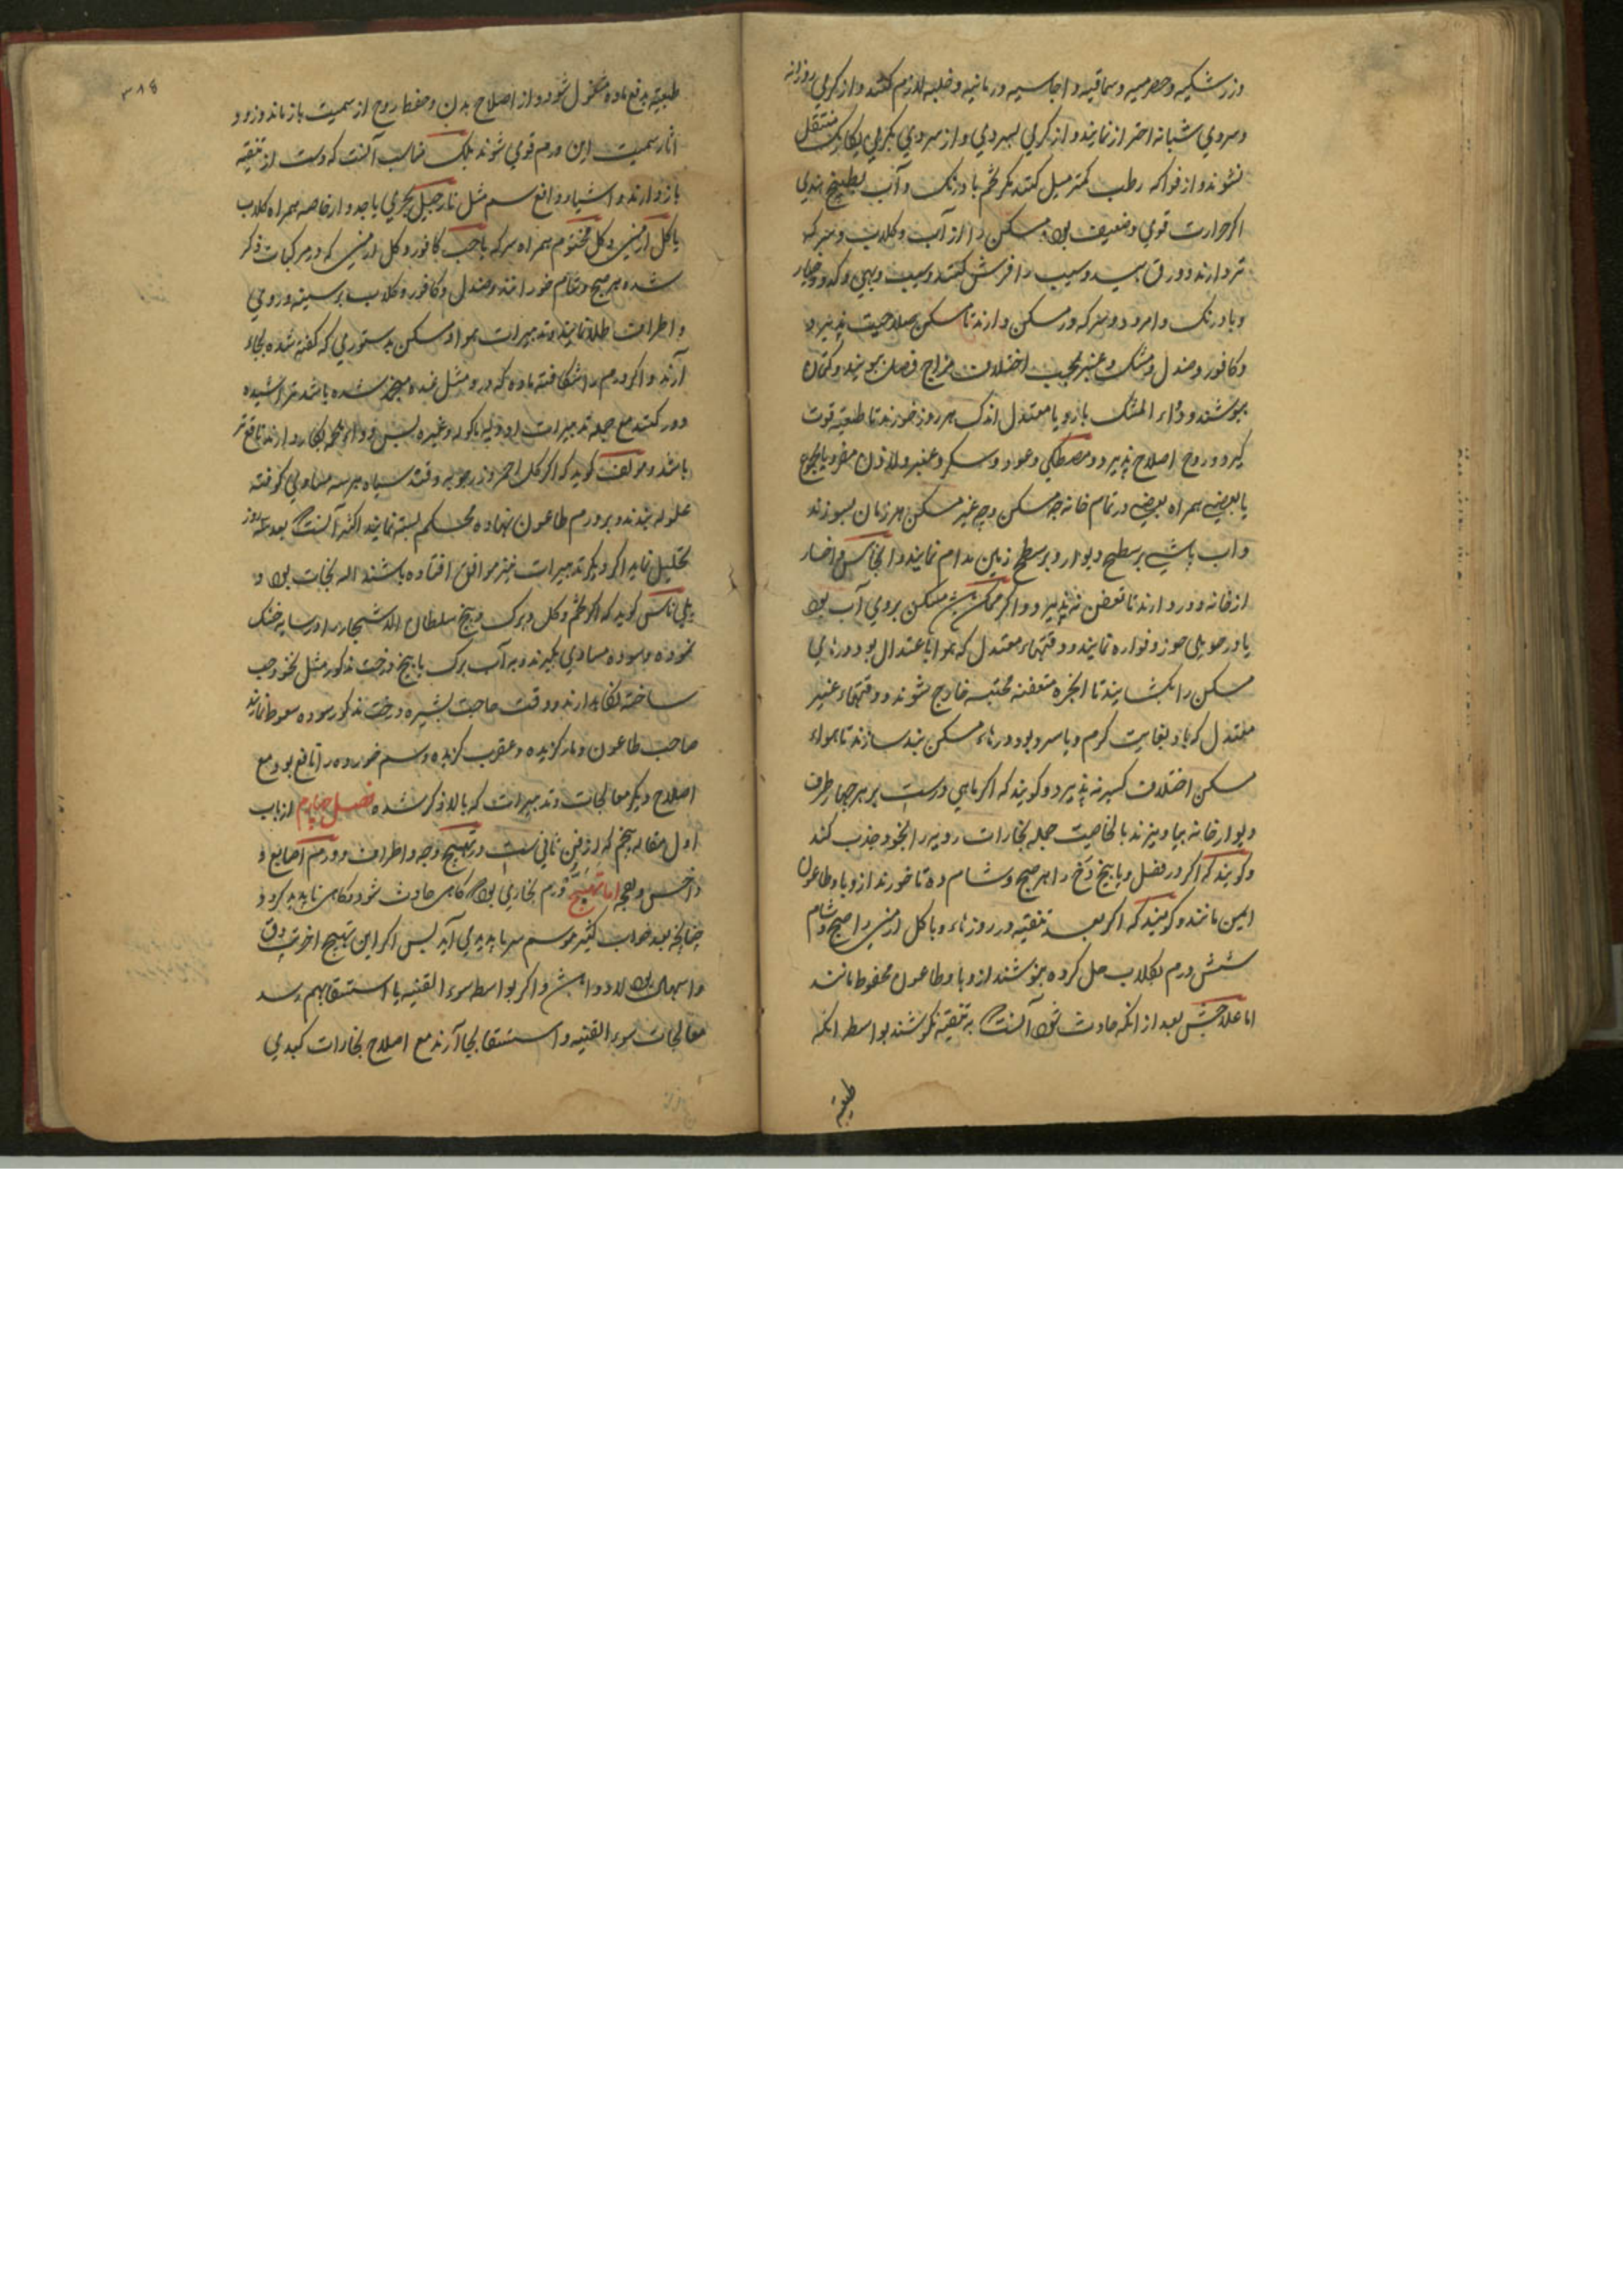 وزرشکیه و حصرمیه و سماقیه و اجاسیه و رمانیه و خلیه لازم کنند و از گرمی روزانه
و سردی شبانه احتراز نمایند و از گرمی بسردی و از سردی بگرمی یکبارگی منتقل
نشوند و از فواکه رطب کمتر میل کنند مگر تخم بادرنگ و آب بطیخ هندی
اگر حرارت قوی و ضعیف بود مسکن را از آب و گلاب و سرکه
تر دارند و ورق بید و سیب را فرش کنند و سیب و بهی و کدو و خیار
و بادرنگ و امرود و سرکه در مسکن دارند تا مسکن صلاحیت پذیرد
و کافور و صندل و مشک و عنبر بحسب اختلاف مزاج و فصل بویند و کتان
بپوشند و دواء المشک بارد یا معتدل اندک هر روز خورند تا طبیعة قوت
گیرد و روح اصلاح پذیرد و مصطکی و عود و سکر و عنبر و لادن مفرد یا مجموع
یا بعضی همراه بعضی در تمام خانه چه مسکن و چه غیر مسکن هر زمان بسوزند
و اب پاشی بر سطح دیوار و بر سطح زمین مدام نمایند و انجاس و اخسار
از خانه دور دارند تا تعفن نه پذیرد و اگر ممکن باشد مسکن بروی آب بود
یا در حویلی حوز و فواره نمایند و وقتهاء معتدل که هوا باعتدال بود درهای
مسکن را بکشایند تا ابخره متعفنه محتبسه خارج شوند و وقتهاء غیر
معتدل که باد بغایت گرم و یا سرد بود درهاء مسکن بند سازند تا هواء
مسکن اختلاف کسیر نه پذیرد و گویند که اگر ماهی درست بر هر چهار طرف
دیوار خانه بیاویزند بالخاصیت جمله بخارات ردیه را بخود جذب کند
و گویند که اگر در فصل وبا بیخ دخ را هر صبح و شام ده تا خورند از وبا و طاعون
ایمن مانند و گویند که اگر بعد تنقیه در روزهاء وبا گل ارمنی را صبح و شام
شش درم بگلاب حل کرده بنوشند از وبا و طاعون محفوظ مانند
اما علاجش بعد از انکه حادث شود آنست که به تنقیه نکوشند بواسطه انکه
طبیعة
۳۸۵
طبیعة بدفع ماده مشغول شود و از اصلاح بدن و حفظ روح از سمیت باز ماند و زود
اثار سمیت این ورم قوی شوند بلک مناسب آنست که دست از تنقیه
باز دارند و اشیاء دافع سم مثل نارجیل بحری یا جدوار خاصه همراه گلاب
یا گل ارمنی و گل مختوم همراه سرکه یا حب کافور و گل ارمنی که در مرکبات ذکر
شده هر صبح و شام خورانند و صندل و کافور و گلاب بر سینه و روی
و اطراف طلا نمایند و تدبیرات هوا و مسکن بدستوری که گفته شده بجاء
آرند و اگر ورم را شکافته ماده که درو مثل غده منجمد شده باشد تراشیده
دور کنند مع جمله تدبیرات ادویه ماکوله و غیره بس و و انچه بکار دارند نافع تر
باشد و مولف گوید که اگر گل احمر و زرچوبه و قند سیاه هر سه مساوی کوفته
غلوله بندند و بر ورم طاعون نهاده محکم بسته نمایند اکثر آنست که بعد سه روز
تحلیل نماید اگر دیگر تدبیرات نیز موافق افتاده باشند البه نجات بود و
یلی ناس گوید که اگر تخم و گل و برگ و بیخ سلطان الاشجار را در سایه خشک
نموده و سوده مساوی بگیرند و به آب برگ یا بیخ درخت مذکور مثل نخود حب
ساخته نگاه دارند و وقت حاجت بشیره درخت مذکور سوده سعوط نمایند
صاحب طاعون و مار گزیده و عقرب گزیده و سم خورده را نافع بود مع
اصلاح دیگر معالجات و تدبیرات که بالا ذکر شده فصل چهارم از باب
اول مقاله پنجم که از فن ثانی ست در تهیج وجه و اطراف و ورم اصابع و
داخس و لعجه اما تهیج ورم بخاری بود گاهی حادث شود و گاهی ناپدید گردد
چنانچه بعد خواب کثیر موسم سرما پدید می آید بس اگر این تهیج اخر تپ دق
و اسهال بود لا دوا باشد و اگر بواسطه سوء القنیه یا استسقا بهم رسد
معالجات سوء القنیه و استسقا بجا آرند مع اصلاح بخارات کبدی